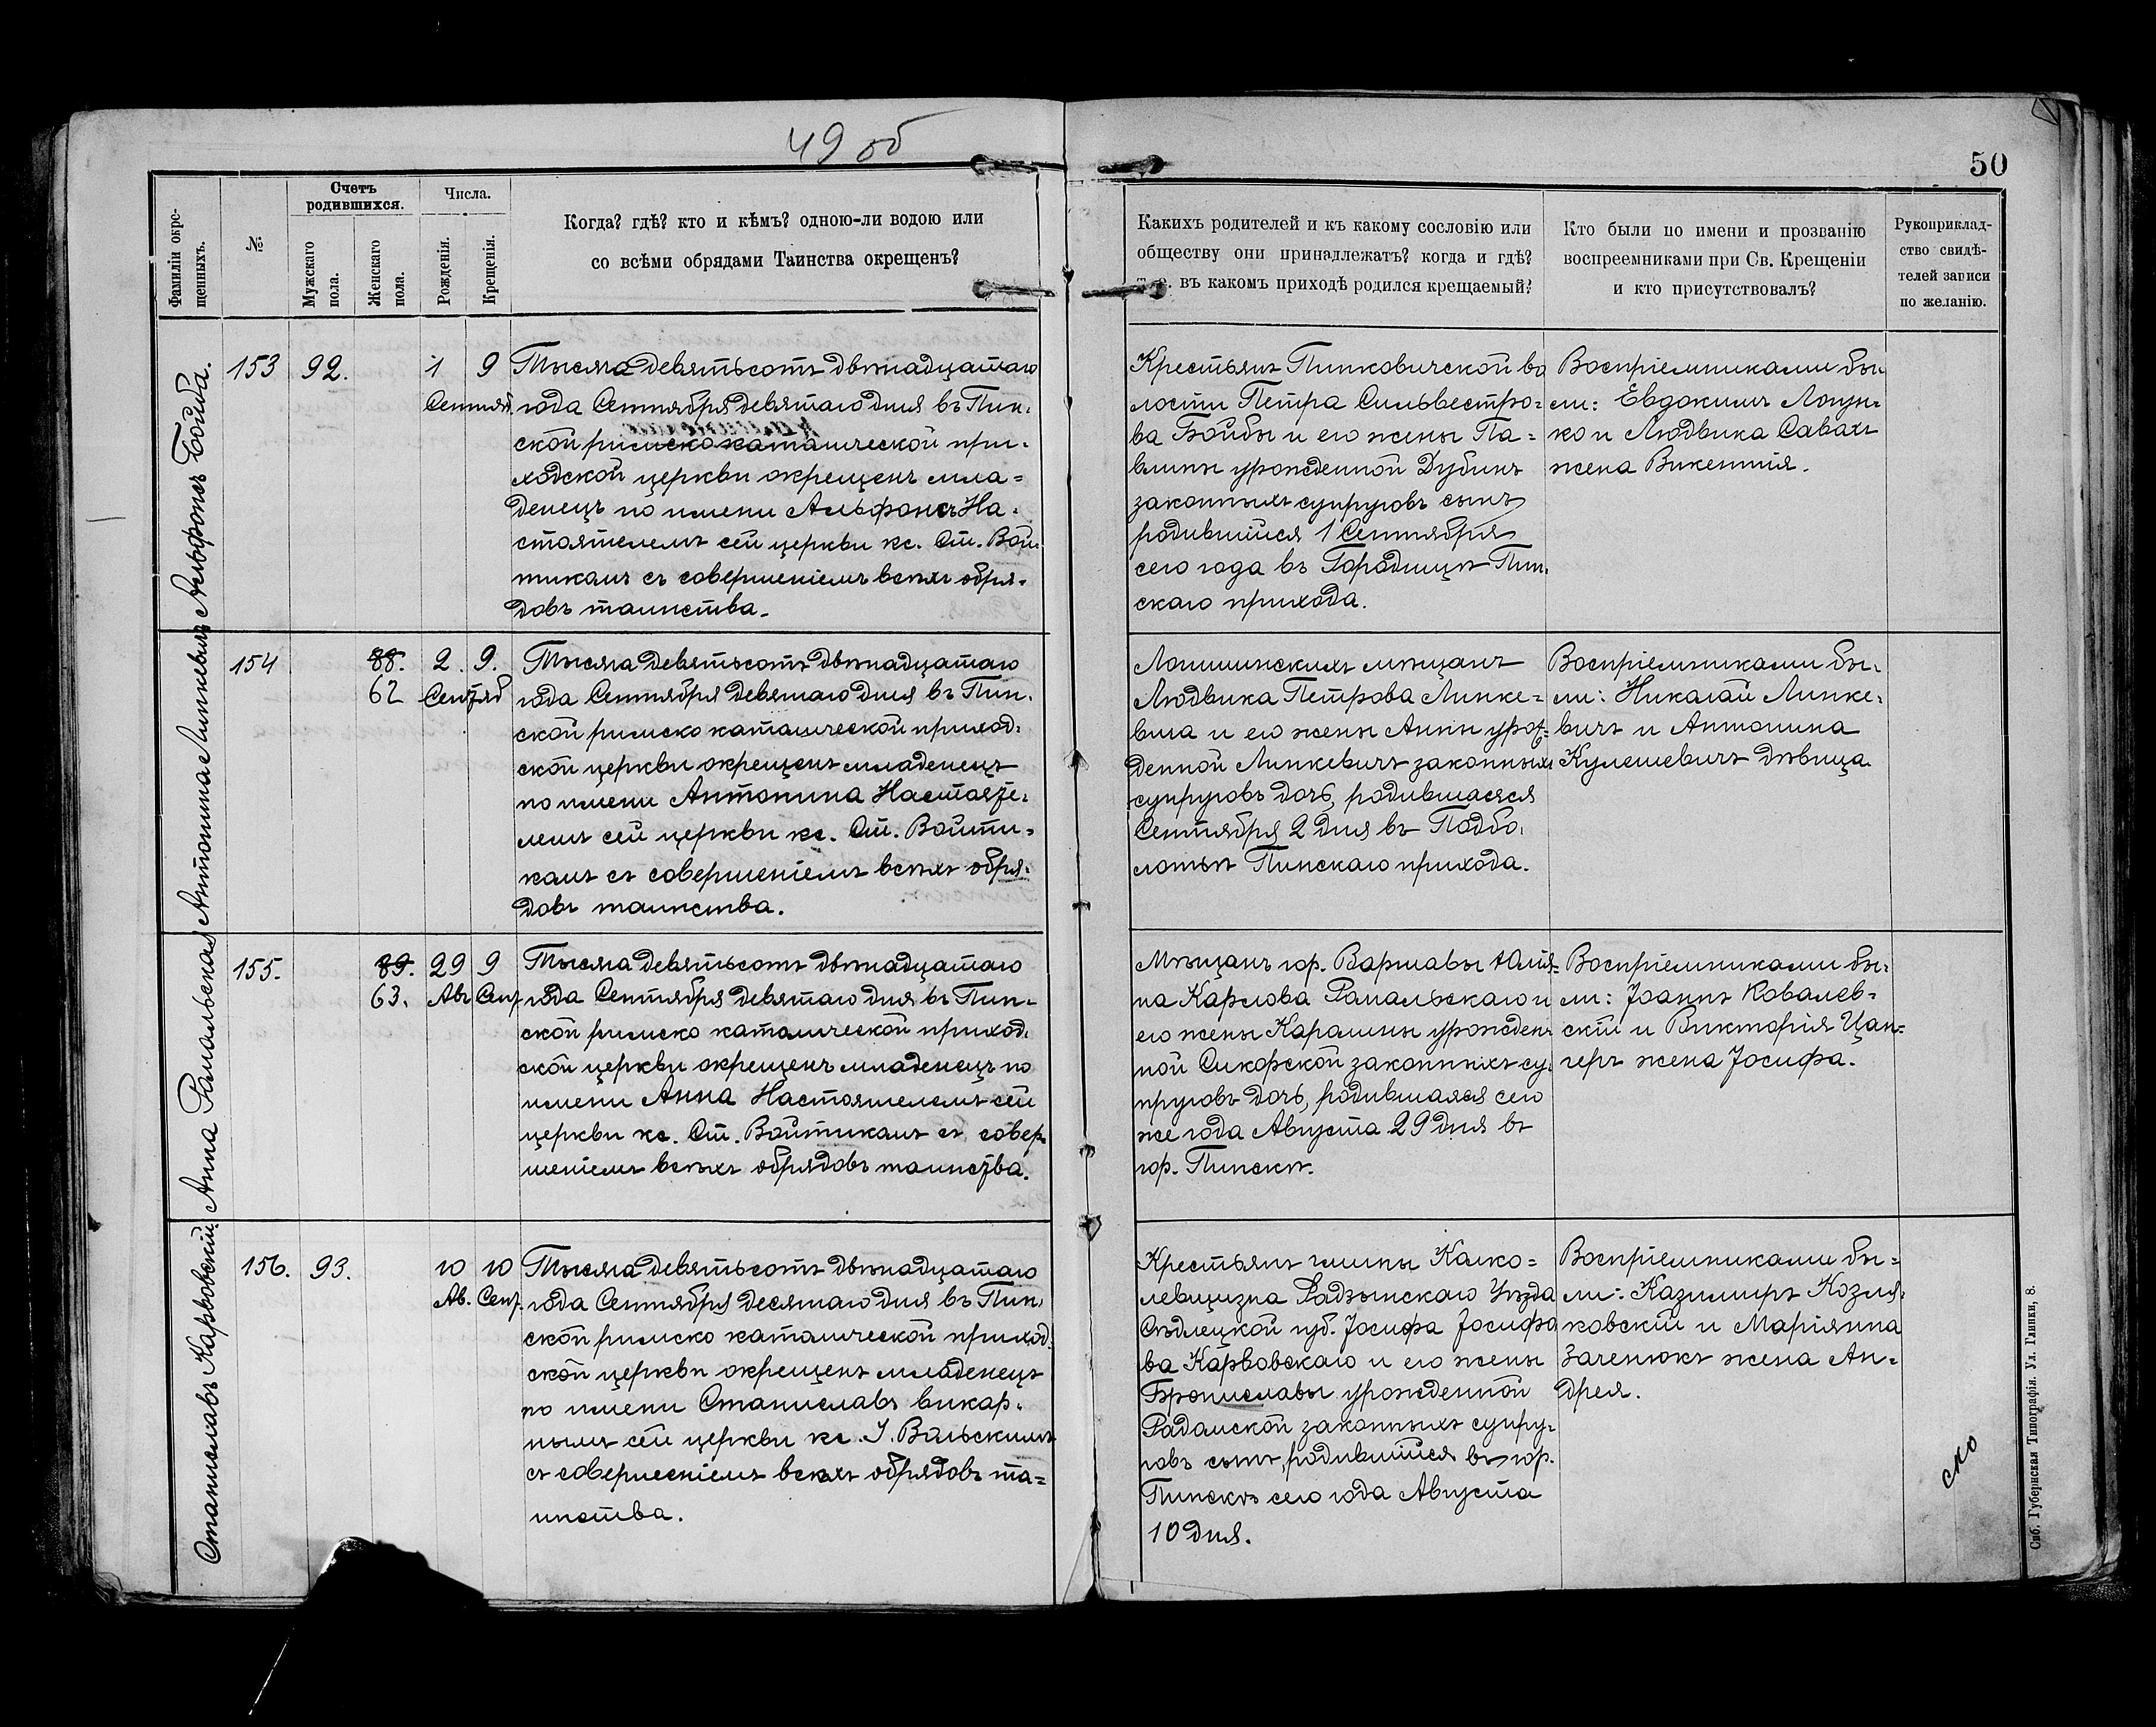 49 об
50
Фамиліи окре-
щенныхъ.
№
Счетъ
родившихся.
Мужскаго
пола.
Женскаго
пола.
Числа.
Рожденія.
Крещенія.
Когда? гдѣ? кто и кѣмъ? одною-ли водою или
со всѣми обрядами Таинства окрещенъ?
Какихъ родителей и къ какому сословію или
обществу они принадлежатъ? когда и гдѣ?
т. е. въ какомъ приходѣ родился крещаемый?
Кто были по имени и прозванію
воспреемниками при Св. Крещеніи
и кто присутствовалъ?
Рукоприклад-
ство свидѣ-
телей записи
по желанію.
Альфонсъ Бойба.
153
92.
1 9
Сентяб
Тысяча девятьсотъ двѣнадцатаго
года Сентября девятаго дня въ Пин-
ской римско католической при-
ходской церкви окрещенъ мла-
денецъ по имени Альфонсъ На-
стоятелемъ сей церкви кс. Ст. Вой-
тикамъ съ совершеніемъ всѣхъ обря-
довъ таинства.
Крестьянъ Пинковичской во
лости Петра Сильвестро-
ва Бойбы и его жены Па-
влины урожденной Дубинъ
законныхъ супруговъ сынъ
родившійся 1 Сентября
сего года въ Городищѣ Пин-
скаго прихода.
Воспріемниками бы-
ли: Евдокимъ Лопун-
ко и Людвика Савахъ
жена Викентія.
Антонина Липкевичъ
154
88.
62
2. 9.
Сентяб
Тысяча девятьсотъ двѣнадцатаго
года Сентября девятаго дня въ Пин-
ской римско католической приход-
ской церкви окрещенъ младенецъ
по имени Антонина Настояте-
лемъ сей церкви кс. Ст. Войти-
камъ съ совершеніемъ всѣхъ обря-
довъ таинства.
Логишинскихъ мѣщанъ
Людвика Петрова Липке-
вича и его жены Анны урож-
денной Липкевичъ законныхъ
супруговъ дочь, родившаяся
Сентября 2 дня въ Подбо-
лотьѣ Пинскаго прихода.
Воспріемниками бы-
ли: Николай Липке-
вичъ и Антонина
Кулешевичъ дѣвица.
Анна Рапальская
155.
89.
63.
29 9
Авг Сент
Тысяча девятьсотъ двѣнадцатаго
года Сентября девятаго дня въ Пин-
ской римско католической приход-
ской церкви окрещенъ младенецъ по
имени Анна Настоятелемъ сей
церкви кс. Ст. Войтикамъ съ совер-
шеніемъ всѣхъ обрядовъ таинства.
Мѣщанъ гор. Варшавы Юлія-
на Карлова Рапальскаго и
его жены Каролины урожден-
ной Сикорской законныхъ су-
пруговъ дочь, родившаяся сего
же года Августа 29 дня въ
гор. Пинскѣ.
Воспріемниками бы-
ли: Іоаннъ Ковалев-
скій и Викторія Цан-
геръ жена Іосифа.
Станиславъ Карвовскій.
156.
93.
10 10
Ав. Сент.
Тысяча девятьсотъ двѣнадцатаго
года Сентября десятаго дня въ Пин-
ской римско католической приход-
ской церкви окрещенъ младенецъ
по имени Станиславъ викар-
нымъ сей церкви кс. І. Вольскимъ
съ совершеніемъ всѣхъ обрядовъ та-
инства.
Крестьянъ гмины Калко-
левщизна Радзынскаго Уѣзда
Сѣдлецкой губ. Іосифа Іосифо
ва Карвовскаго и его жены
Брониславы урожденной
Радомской законныхъ супру-
говъ сынъ, родившійся въ гор.
Пинскѣ сего года Августа
10 дня.
Воспріемниками бы-
ли: Казимиръ Козля-
ковскій и Маріянна
Заченюкъ жена Ан-
дрея.
Спб. Губернская Типографія. Ул. Глинки, 8.